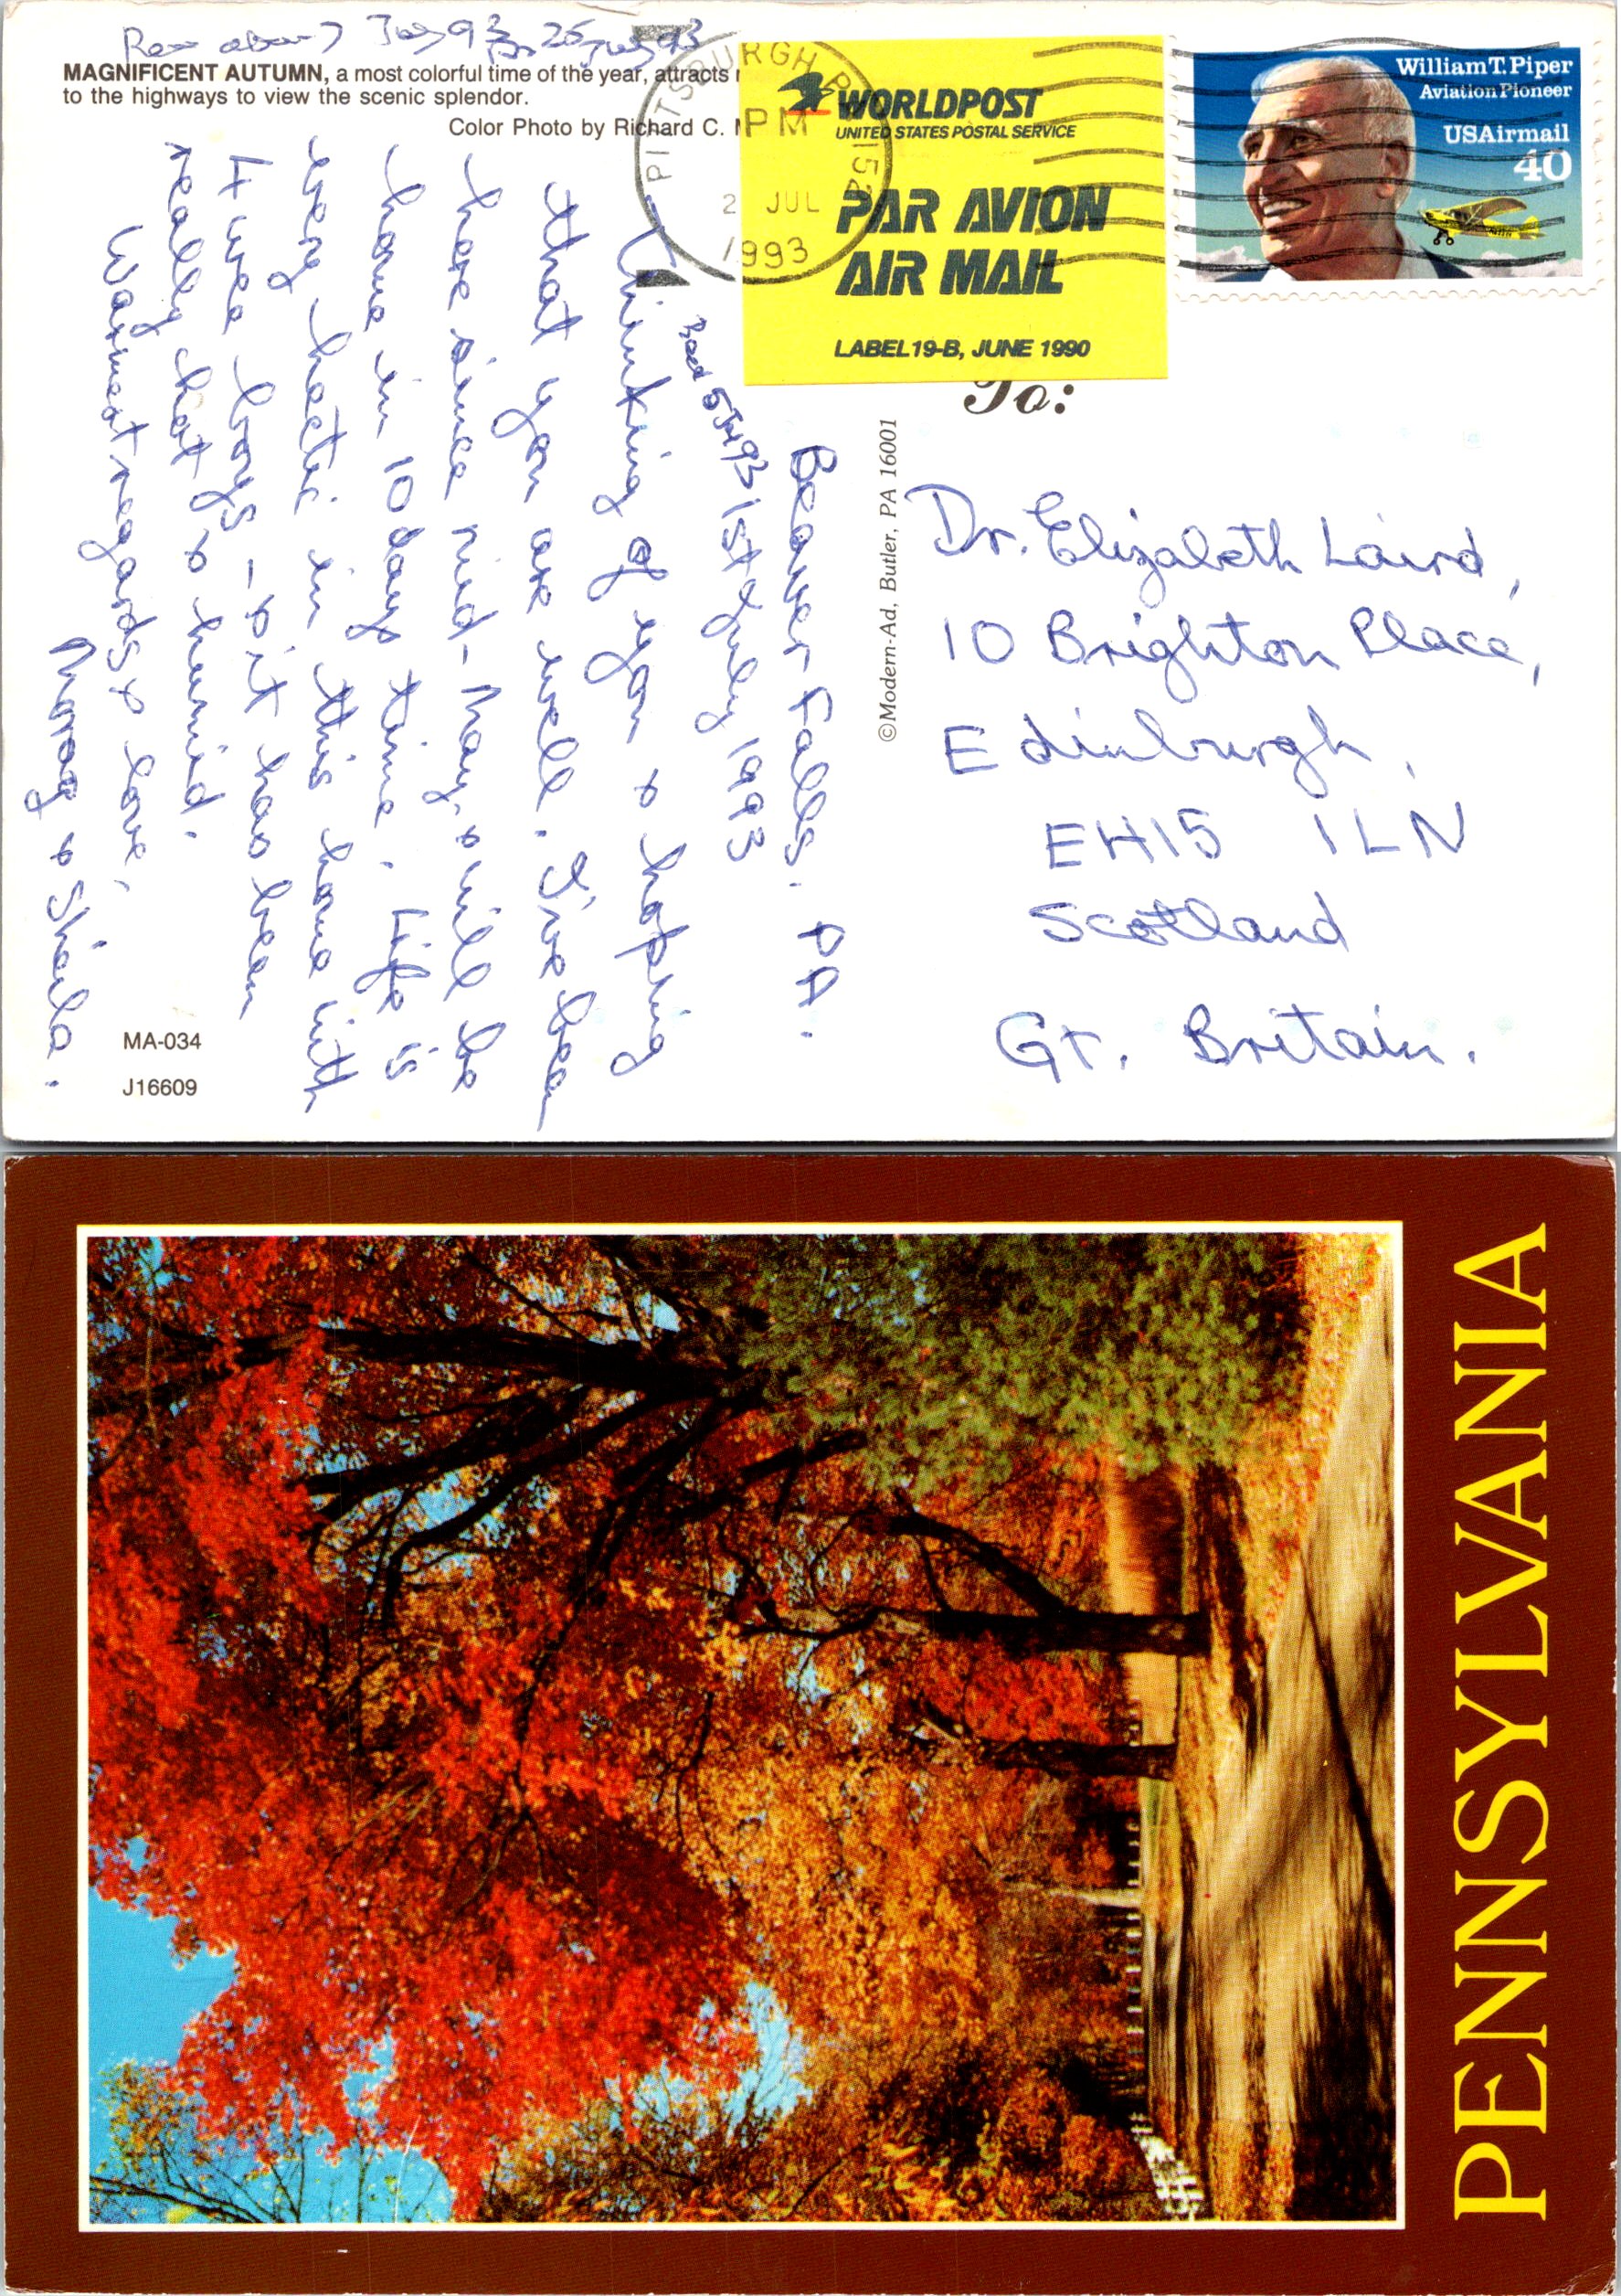 MAGNIFICENT AUTUMN, a most colorful time of the year, attracts
to the highways to view the scenic splendor.
Color Photo by Richard C.
PITTSBURGH P 152
PM
2 JUL
1993
WORLDPOST
UNITED STATES POSTAL SERVICE
PAR AVION
AIR MAIL
LABEL 19-B, JUNE 1990
William T. Piper
Aviation Pioneer
USAirmail
40
Beaver Falls. PA.
1st July 1993
Thinking of you & hoping
that you are well. I've been
here since mid-May, & will be
home in 10 days time. Life is
very hectic in this home with
4 wee boys - & it has been
really hot & humid.
Warmest regards & love,
Morag & Sheila.
MA-034
J16609
©Modern-Ad, Butler, PA 16001
To:
Dr. Elizabeth Laird,
10 Brighton Place,
Edinburgh,
EH15 1LN
Scotland
Gt. Britain.
PENNSYLVANIA